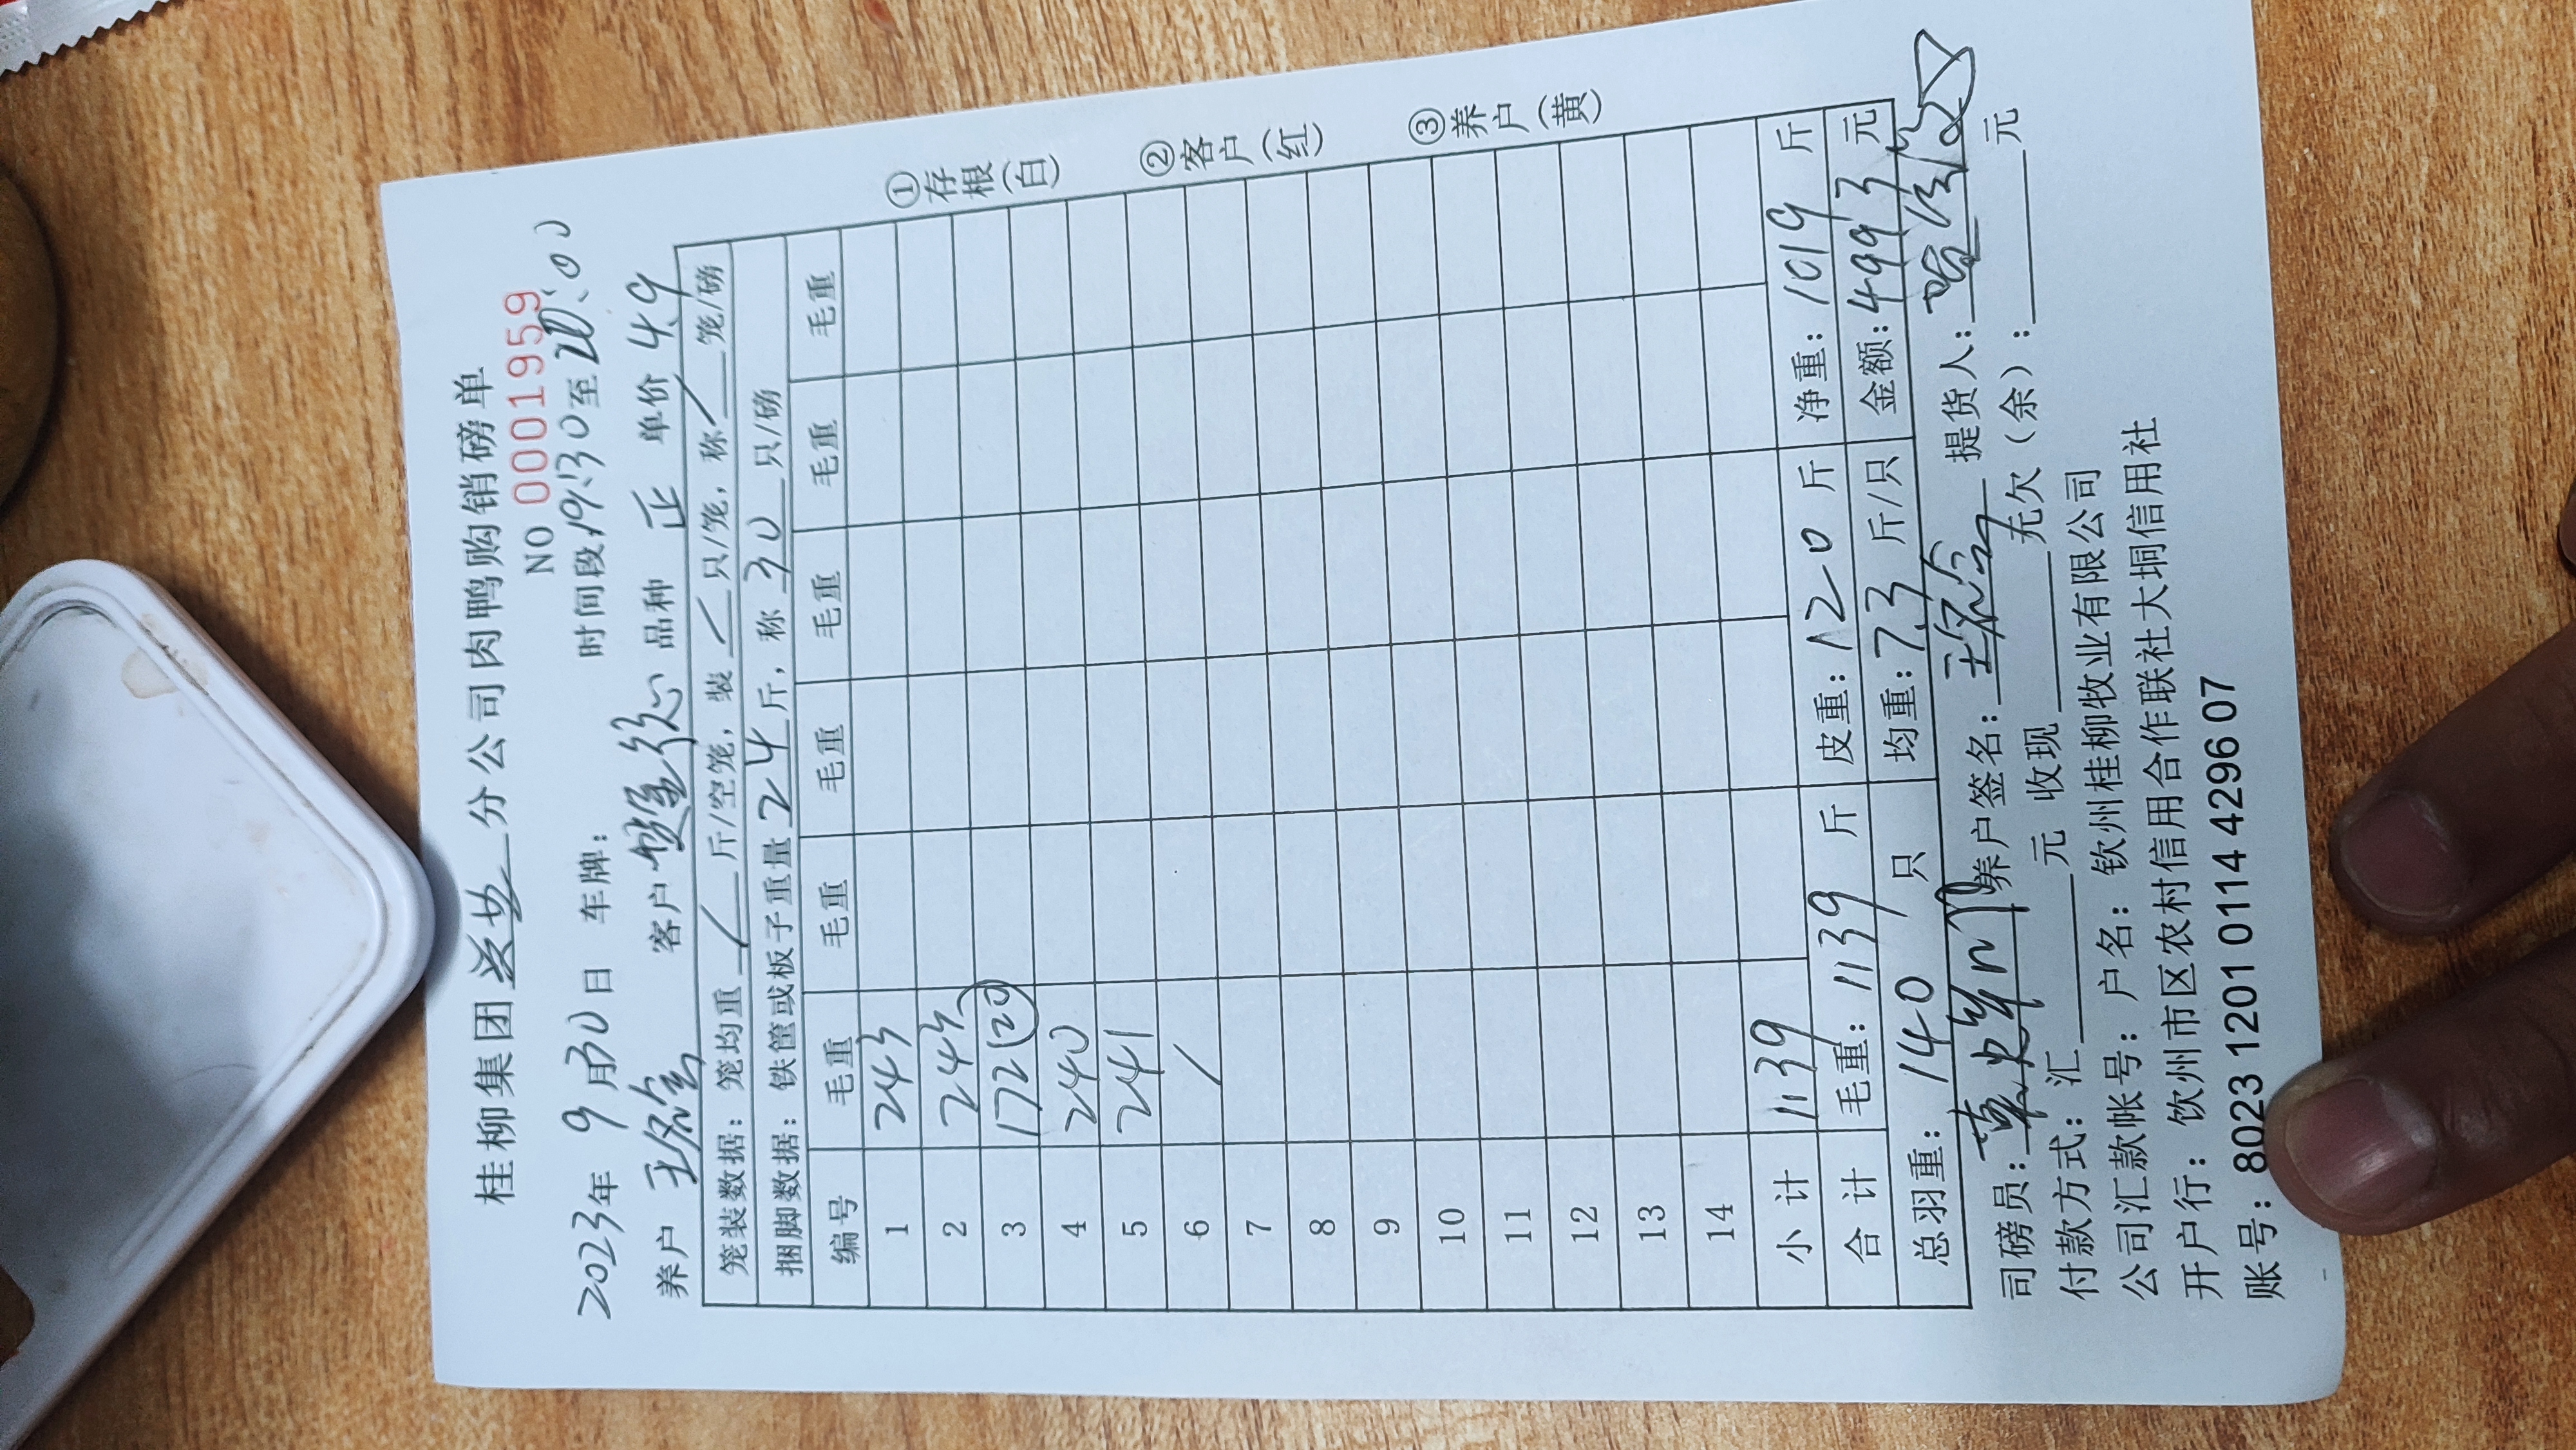 桂柳集团 分公司肉鸭购销磅单
NO 00001959
2023年 9月30日 车牌： 时间段19:30至20:00
养户 客户 品种 正 单价 4.9
笼装数据：笼均重 / 斤/空笼，装 / 只/笼，称 / 笼/磅
捆脚数据：铁筐或板子重量 24 斤，称 30 只/磅
编号 毛重 毛重 毛重 毛重 毛重 毛重
1 243
2 243
3 172 (20)
4 240
5 241
6 /
7
8
9
10
11
12
13
14
小计 1139
合计 毛重：1139 斤 皮重：120 斤 净重：1019 斤
总羽重：140 只 均重：7.3 斤/只 金额：4993 元
司磅员： 养户签名： 提货人：
付款方式：汇 元 收现 元欠（余）： 元
公司汇款帐号：户名：钦州桂柳牧业有限公司
开户行：钦州市区农村信用合作联社大垌信用社
账号：8023 1201 0114 4296 07
①存根（白）
②客户（红）
③养户（黄）